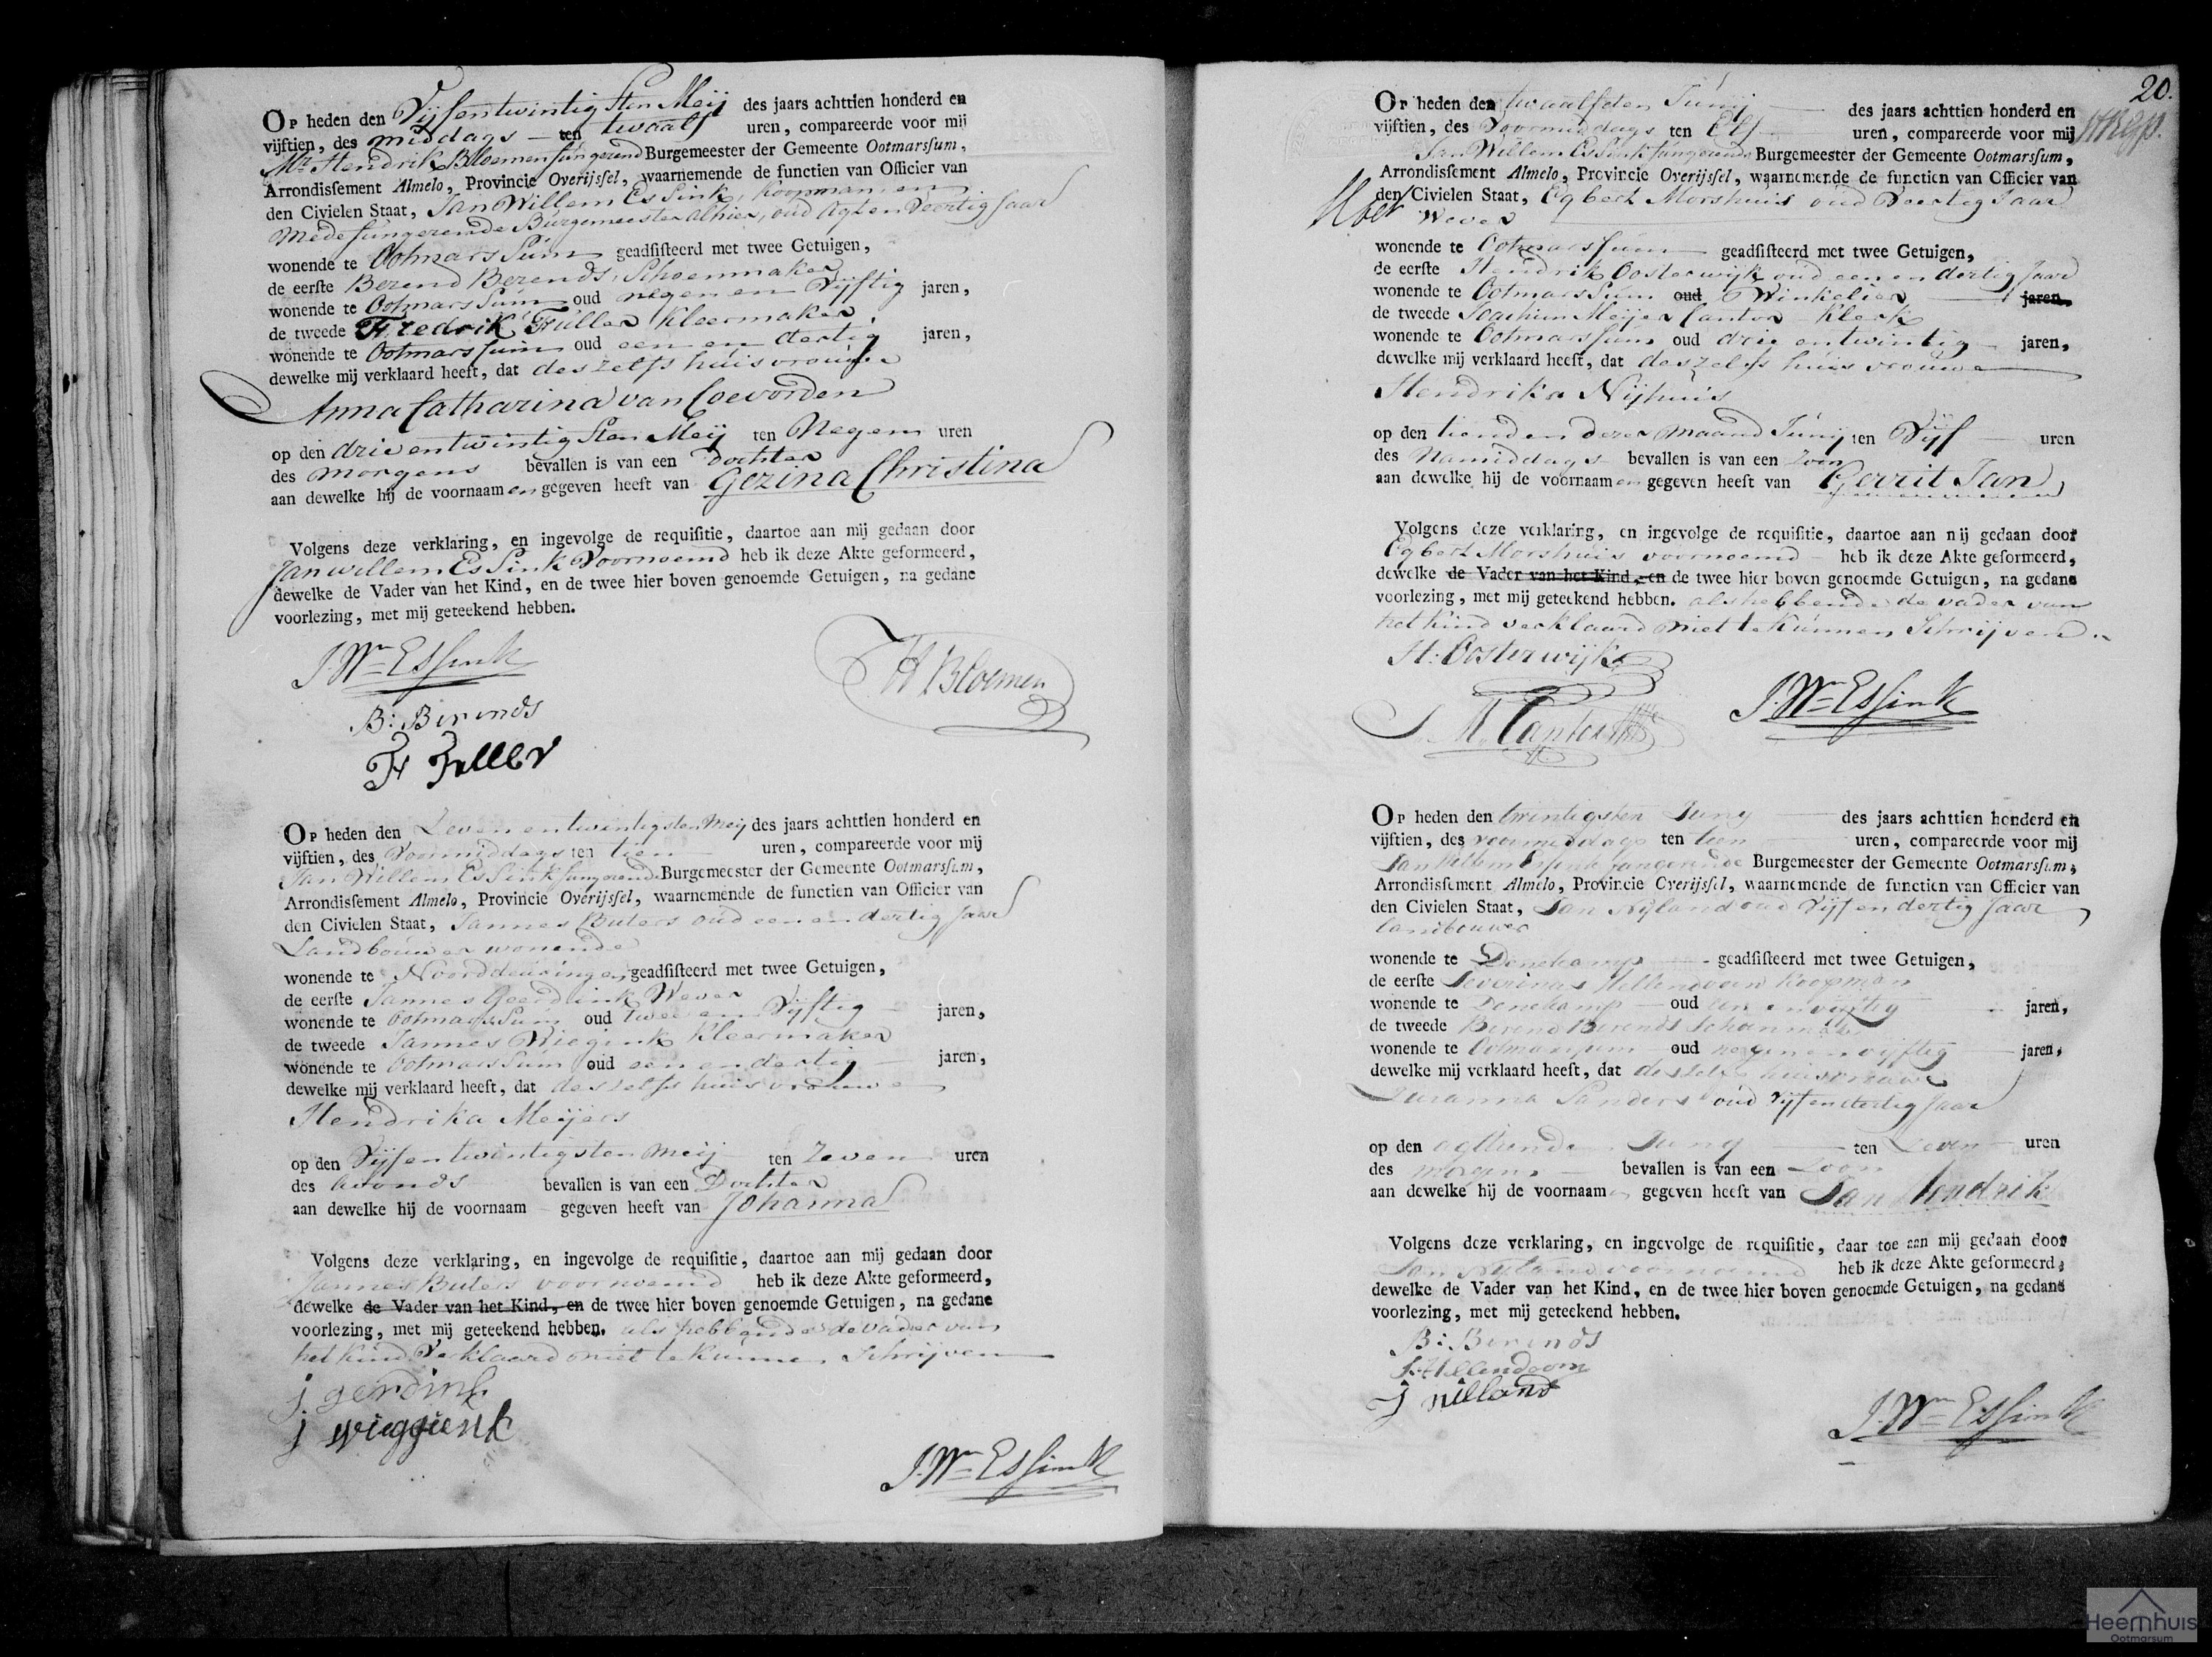 Op heden den Vijfentwintigsten Meij des jaars achttien honderd en
vijftien, des middags ten twaalf uren, compareerde voor mij
Mr. Hendrik Bloemen fungerend Burgemeester der Gemeente Ootmarssum,
Arrondissement Almelo, Provincie Overijssel, waarnemende de functien van Officier van
den Civielen Staat, Jan Willem Essink, Koopman, en
Mede fungerende Burgemeester alhier, oud Agt en Veertig Jaar
wonende te Ootmarssum geadsisteerd met twee Getuigen,
de eerste Berend Berends, Schoenmaker
wonende te Ootmarssum oud negen en Vijftig jaren,
de tweede Fredrik Fuller Kleermaker
wonende te Ootmarssum oud een en dertig jaren,
dewelke mij verklaard heeft, dat deszelfs huisvrouwe
Anna Catharina van Coevorden
op den drie entwintigsten Meij ten Negen uren
des morgens bevallen is van een Dochter
aan dewelke hij de voornaamen gegeven heeft van Gezina Christina
Volgens deze verklaring, en ingevolge de requisitie, daartoe aan mij gedaan door
Jan willem Essink Voornoemd heb ik deze Akte geformeerd,
dewelke de Vader van het Kind, en de twee hier boven genoemde Getuigen, na gedane
voorlezing, met mij geteekend hebben.
J. Wm Essink
H Bloemen
B: Berends
F Fuller
Op heden den Zeven entwintigsten Meij des jaars achttien honderd en
vijftien, des Voormiddags ten tien uren, compareerde voor mij
Jan Willem Essink fungerend Burgemeester der Gemeente Ootmarssum,
Arrondissement Almelo, Provincie Overijssel, waarnemende de functien van Officier van
den Civielen Staat, Jannes Buters oud een en dertig Jaar
Landbouwer wonende
wonende te Noorddeuringen geadsisteerd met twee Getuigen,
de eerste Jannes Geerdink Wever
wonende te Ootmarssum oud twee en Vijftig jaren,
de tweede Jannes Wiegink Kleermaker
wonende te Ootmarssum oud een en dertig jaren,
dewelke mij verklaard heeft, dat deszelfs huisvrouwe
Hendrika Meijers
op den Vijfentwintigsten Meij ten Zeven uren
des Avonds bevallen is van een Dochter
aan dewelke hij de voornaam gegeven heeft van Johanna
Volgens deze verklaring, en ingevolge de requisitie, daartoe aan mij gedaan door
Jannes Buters voornoemd heb ik deze Akte geformeerd,
dewelke de Vader van het Kind, en de twee hier boven genoemde Getuigen, na gedane
voorlezing, met mij geteekend hebben. als hebbende de vader van
het kind Verklaard niet te kunnen Schrijven
j gerdink
j wieggienk
J. Wm Essink
20.
Op heden den twaalfden Junij des jaars achttien honderd en
vijftien, des Voormiddags ten Elf uren, compareerde voor mij
Jan Willem Essink fungerende Burgemeester der Gemeente Ootmarssum,
Arrondissement Almelo, Provincie Overijssel, waarnemende de functien van Officier van
den Civielen Staat, Egbert Morshuis oud Veertig Jaar
Wever
wonende te Ootmarssum geadsisteerd met twee Getuigen,
de eerste Hendrik Oosterwijk oud een en dertig Jaar
wonende te Ootmarssum oud Winkelier jaren,
de tweede Joachim Meijer Cantor Klerk
wonende te Ootmarssum oud drie entwintig jaren,
dewelke mij verklaard heeft, dat deszelfs huisvrouwe
Hendrika Nijhuis
op den tienden dezer maand Junij ten Vijf uren
des Namiddags bevallen is van een Zoon
aan dewelke hij de voornaamen gegeven heeft van Gerrit Jan
Volgens deze verklaring, en ingevolge de requisitie, daartoe aan mij gedaan door
Egbert Morshuis voornoemd heb ik deze Akte geformeerd,
dewelke de Vader van het Kind, en de twee hier boven genoemde Getuigen, na gedane
voorlezing, met mij geteekend hebben. als hebbende de vader van
het kind verklaard niet te kunnen Schrijven
H: Oosterwijk
J. Wm Essink
Op heden den twintigsten Juny des jaars achttien honderd en
vijftien, des voormiddags ten tien uren, compareerde voor mij
Jan Willem Essink fungerende Burgemeester der Gemeente Ootmarssum,
Arrondissement Almelo, Provincie Overijssel, waarnemende de functien van Officier van
den Civielen Staat, Jan Nyland oud Vijf en dertig Jaar
landbouwer
wonende te Denekamp geadsisteerd met twee Getuigen,
de eerste Severinus Hellendoorn Koopman
wonende te Denekamp oud een en vijftig jaren,
de tweede Berend Berends Schoenmaker
wonende te Ootmarssum oud negen en vijftig jaren,
dewelke mij verklaard heeft, dat deszelfs huisvrouwe
Susanna Sanders oud Vijf en dertig Jaar
op den agttienden Juny ten Zeven uren
des morgens bevallen is van een Zoon
aan dewelke hij de voornaam gegeven heeft van Jan Hendrik
Volgens deze verklaring, en ingevolge de requisitie, daar toe aan mij gedaan door
Jan Nyland voornoemd heb ik deze Akte geformeerd,
dewelke de Vader van het Kind, en de twee hier boven genoemde Getuigen, na gedane
voorlezing, met mij geteekend hebben.
B: Berends
S: Hellendoorn
J nilland
J. Wm Essink
Heemhuis
Ootmarsum